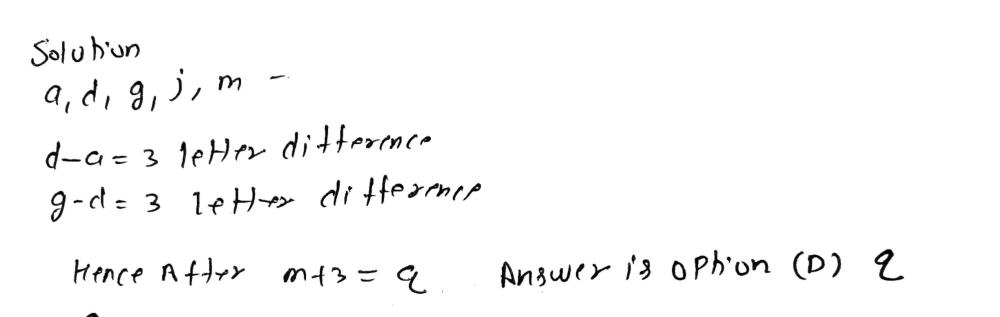 Solution
a, d, g, j, m -
d-a = 3 letter difference
g-d = 3 letter difference
Hence After m+3 = q Answer is option (D) q